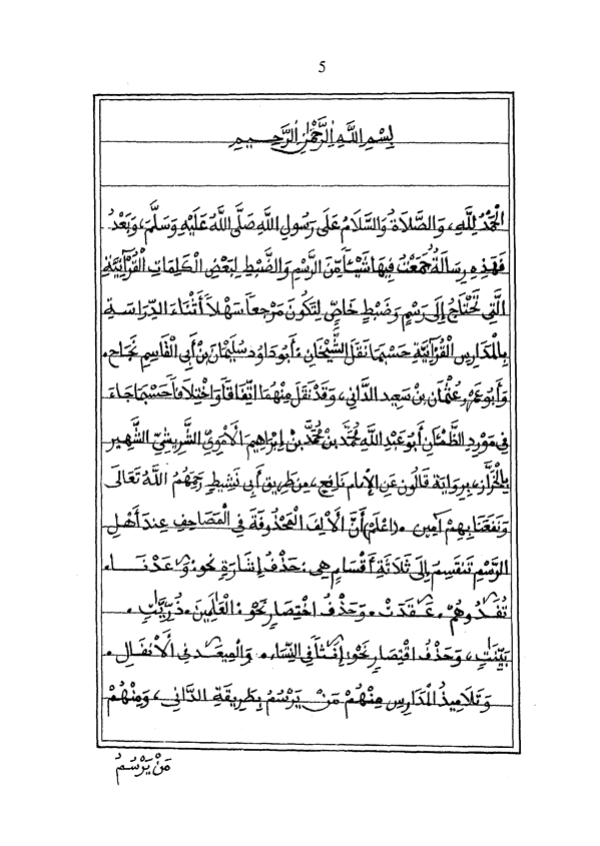 5
بِسْمِ اللَّهِ الرَّحْمَٰنِ الرَّحِيمِ
الْحَمْدُ لِلَّهِ، وَالصَّلَاةُ وَالسَّلَامُ عَلَى رَسُولِ اللَّهِ صَلَّى اللَّهُ عَلَيْهِ وَسَلَّمَ، وَبَعْدُ
فَهَذِهِ رِسَالَةٌ جُمِعَتْ فِيهَا شَيْئاً مِّنَ الرَّسْمِ وَالضَّبْطِ لِبَعْضِ الْكَلِمَاتِ الْقُرْآنِيَّةِ
الَّتِي تَحْتَاجُ إِلَى رَسْمٍ وَضَبْطٍ خَاصٍّ لِتَكُونَ مَرْجِعاً سَهْلاً أَثْنَاءَ الدِّرَاسَةِ
بِالْمَدَارِسِ الْقُرْآنِيَّةِ حَسْبَمَا نَقَلَ الشَّيْخَانِ: أَبُو دَاوُدَ سُلَيْمَٰنُ بْنُ أَبِي الْقَاسِمِ نَجَاحٍ.
وَأَبُو عَمْرٍو عُثْمَٰنُ بْنُ سَعِيدٍ الدَّانِي، وَقَدْ نَقَلَ مِنْهُمَا اتِّفَاقاً وَاخْتِلَافاً حَسْبَمَا جَاءَ
فِي مَوْرِدِ الظَّمْئَانِ أَبُو عَبْدِ اللَّهِ مُحَمَّدُ بْنُ مُحَمَّدِ بْنِ إِبْرَاهِيمَ الْأُمَوِيُّ الشَّرِيشِيُّ الشَّهِيرُ
بِالْخَرَّازِ، بِرِوَايَةِ قَالُونَ عَنِ الْإِمَامِ نَافِعٍ، مِن طَرِيقِ أَبِي نَشِيطٍ رَحِمَهُمُ اللَّهُ تَعَالَى
وَنَفَعَنَا بِهِمْ آمِين. (اعْلَمْ) أَنَّ الْأَلِفَ الْمَحْذُوفَةَ فِي الْمَصَاحِفِ عِندَ أَهْلِ
الرَّسْمِ تَنقَسِمُ إِلَى ثَلَاثَةِ أَقْسَامٍ هِيَ: حَذْفُ إِشَارَةٍ نَحْوُ: وَٰعَدْنَا.
تُفَٰدُوهُمْ. عَٰقَدَتْ. وَحَذْفُ اخْتِصَارٍ نَحْوُ: الْعَٰلَمِينَ. ذُرِّيَّٰتٍ.
بَيِّنَٰتٍ، وَحَذْفُ اقْتِصَارٍ نَحْوُ: إِنَٰثاً فِي النِّسَاءِ. وَالْمِيعَٰدِ فِي الْأَنْفَالِ.
وَتَلَامِيذُ الْمَدَارِسِ مِنْهُمْ مَنْ يَرْسُمُ بِطَرِيقَةِ الدَّانِي، وَمِنْهُمْ
مَنْ يَرْسُمُ